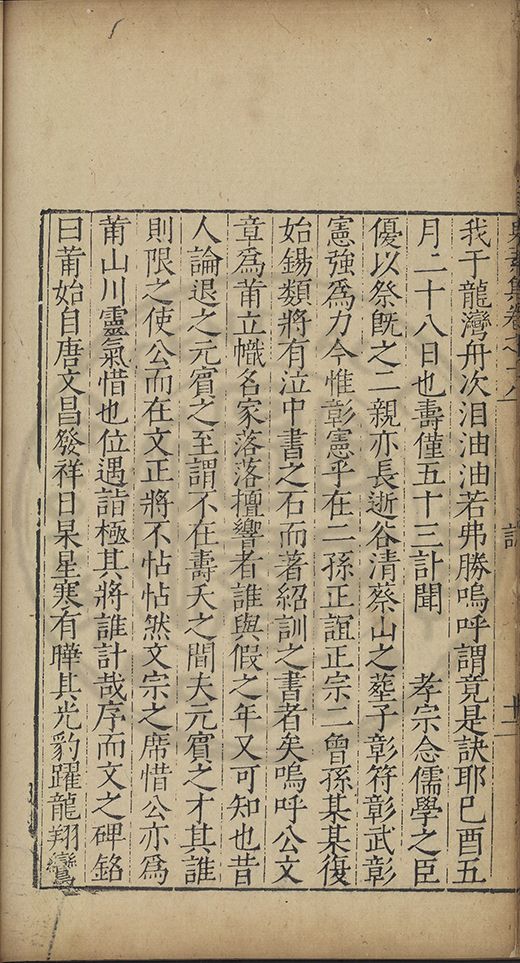 我于龍灣舟次泪油油若弗勝嗚呼謂竟是訣耶巳酉五
月二十八日也壽僅五十三訃聞　孝宗念儒學之臣
優以祭旣之二親亦長逝谷清蔡山之塟子彰符彰武彰
憲強爲力今惟彰憲乎在二孫正誼正宗二曾孫某某復
始錫類將有泣中書之石而著紹訓之書者矣嗚呼公文
章爲莆立幟名家落落擅響者誰與假之年又可知也昔
人論退之元賓之至謂不在壽夭之間夫元賓之才其誰
則限之使公而在文正將不帖帖然文宗之席惜公亦爲
莆山川靈氣惜也位遇詣極其將誰計哉序而文之碑銘
曰莆始自唐文昌發祥日杲星寒有曄其光豹躍龍翔鸞